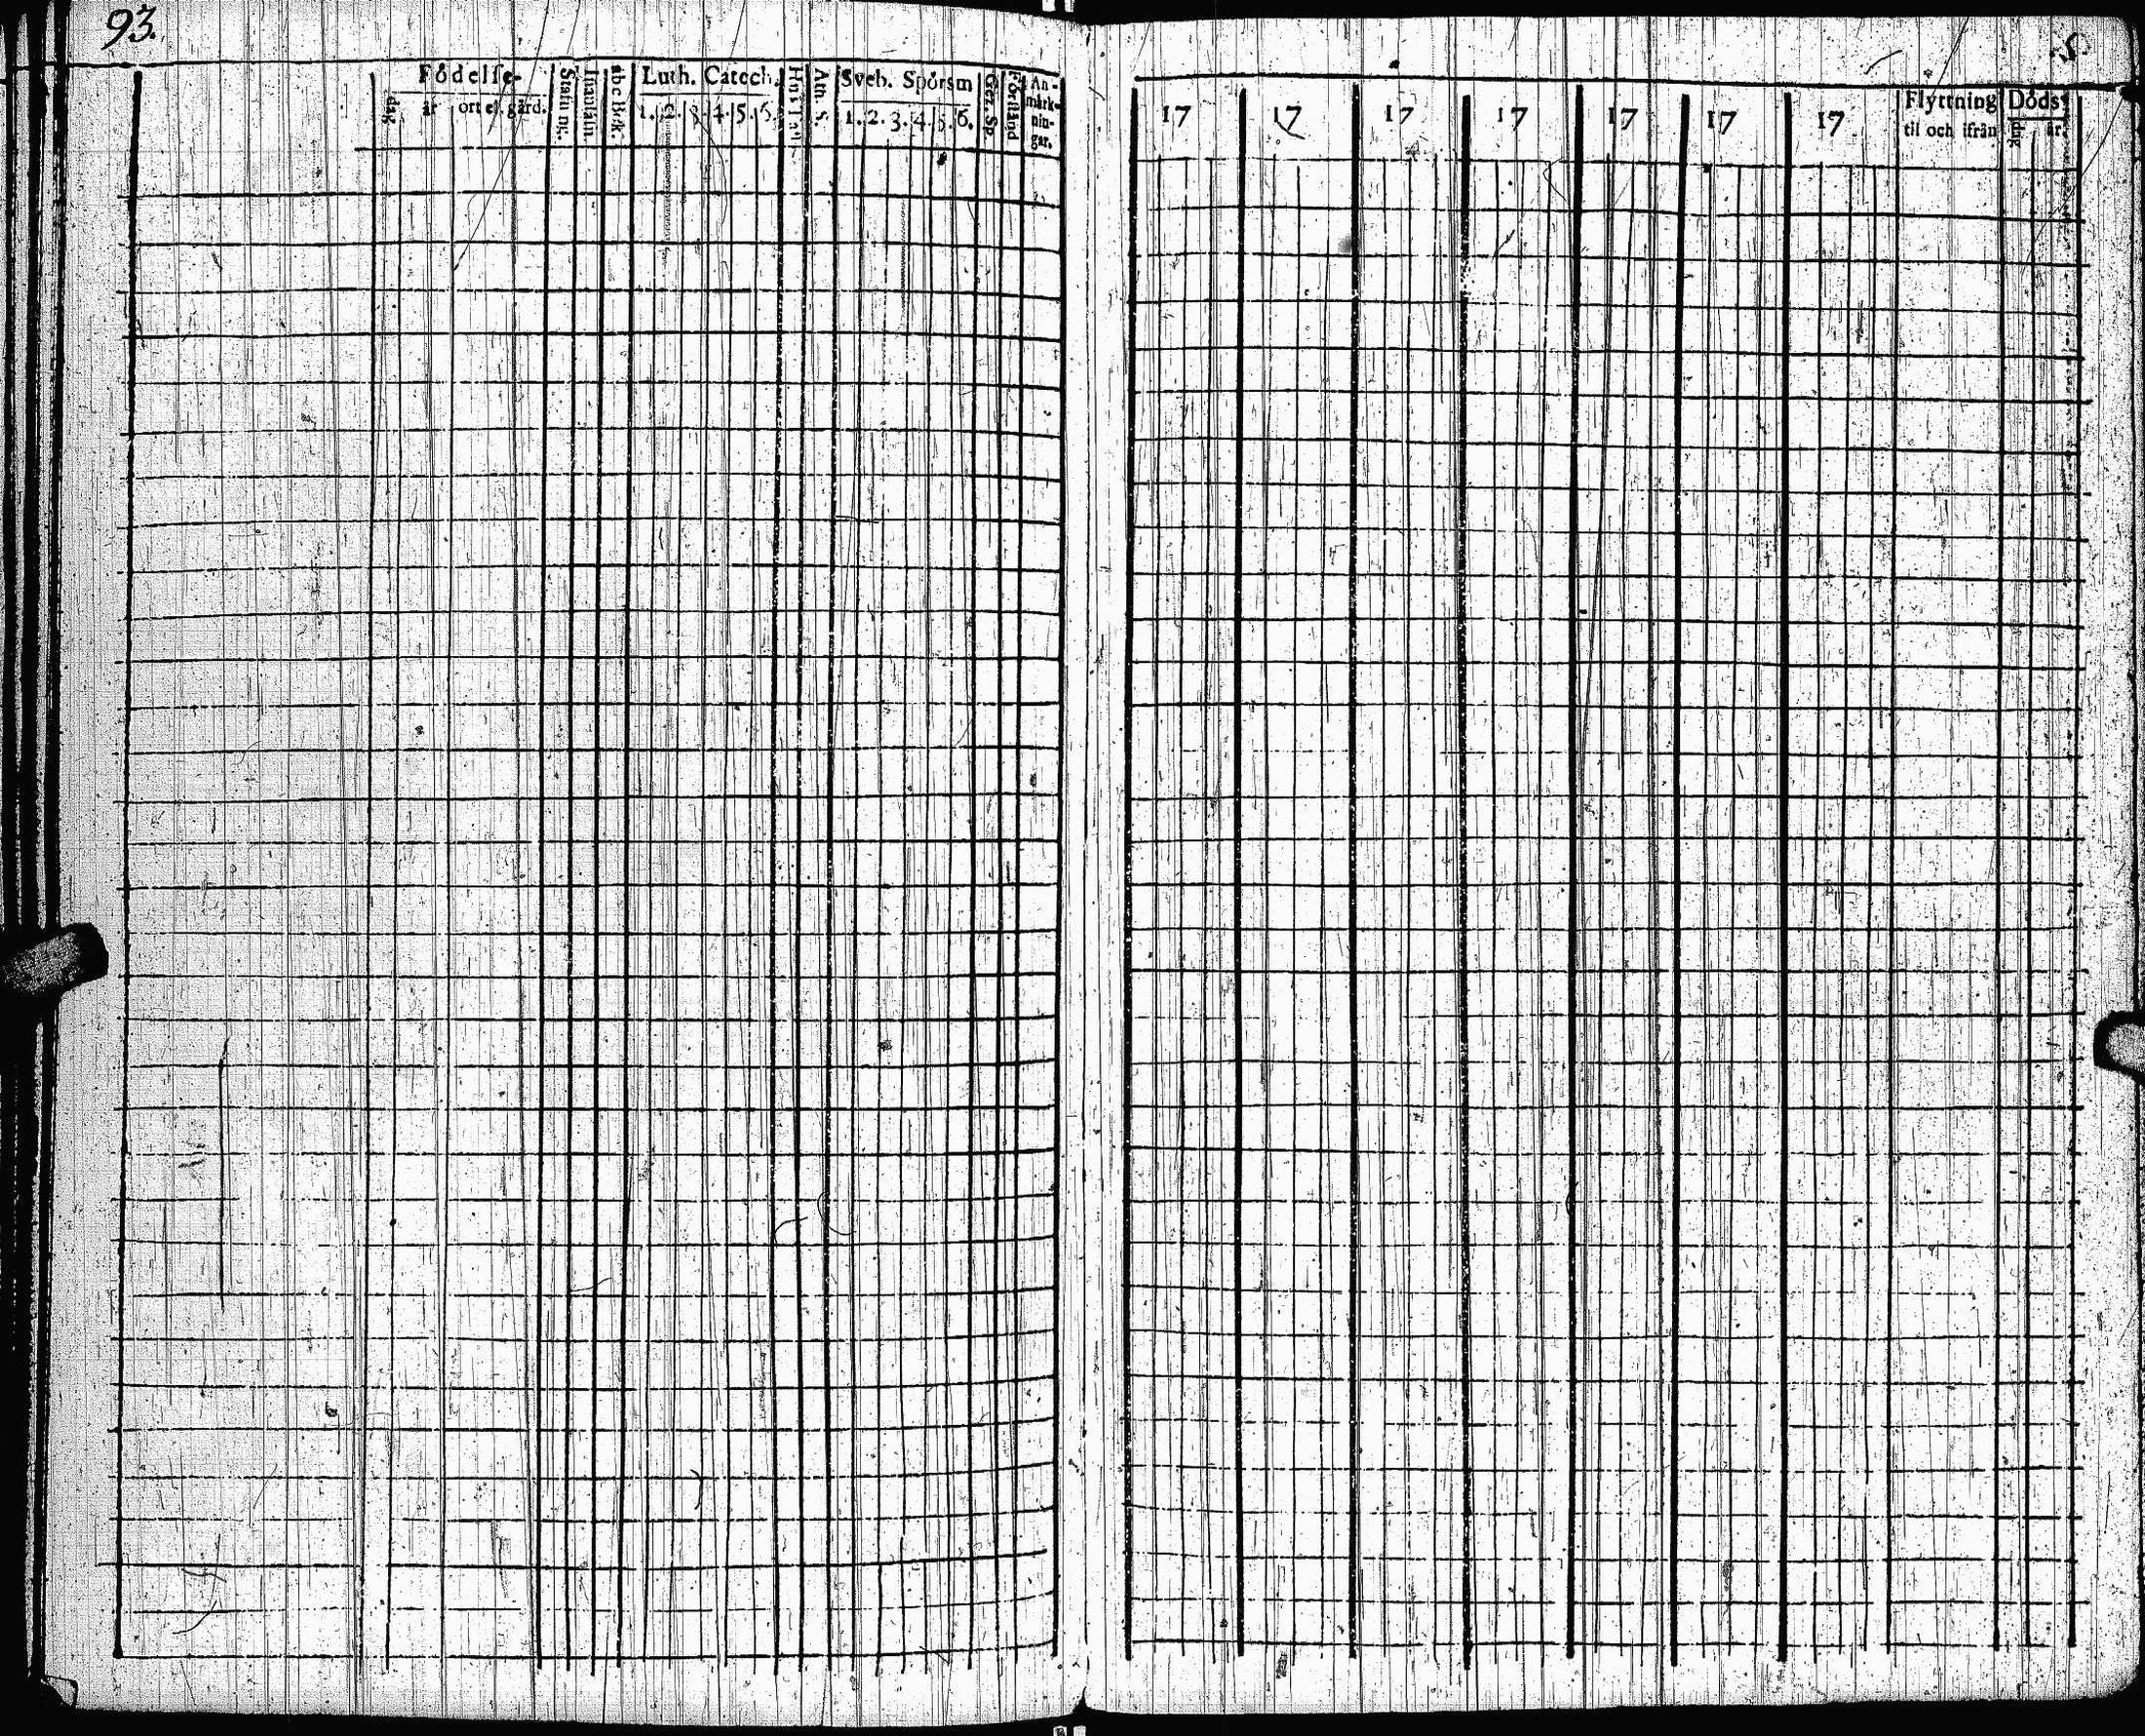 93.
Födelse-
dag
år
ort el. gård.
Stafn n:.
Innanläsn.
abc Bok.
Luth. Catech.
1. 2. 3. 4. 5. 6.
Ath. S.
Sveb. Spörsm
1. 2. 3. 4. 5. 6.
Gez. Sp.
Förstånd
An-
märk-
nin-
gar.
17 17 17 17 17 17 17
Flyttning
til och ifrån
Döds
dag
år.